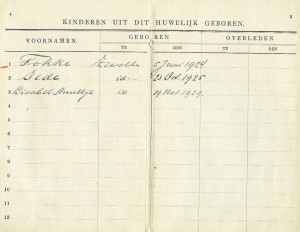 KINDEREN UIT DIT HUWELIJK GEBOREN.
VOORNAMEN. GEBOREN OVERLEDEN
TE DEN TE DEN
1 Fokke Zwolle 5 Juni 1924
2 Jede id 21 Oct. 1925
3 Elisabet id 19 Nov. 1929
4
5
6
7
8
9
10
11
12